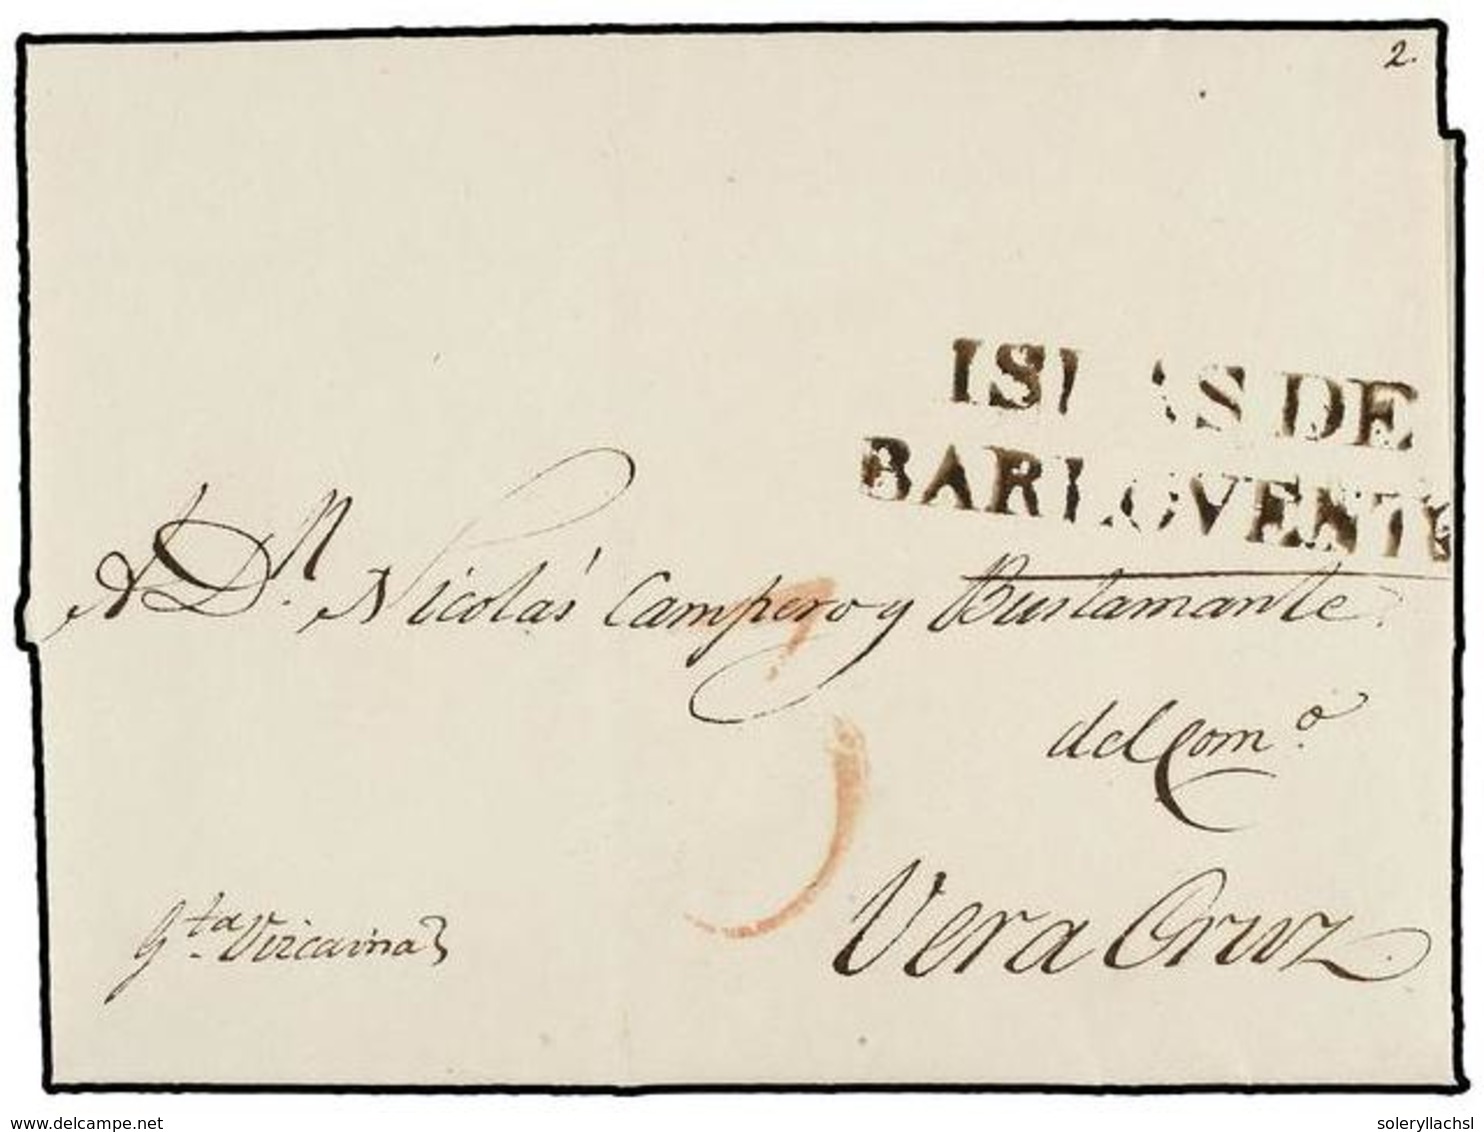 2.
ISLAS DE
BARLOVENTO
A Dn. Nicolás Campero y Bustamante
del Com.o
Vera Cruz
gta. Vizcaina
3
delcampe.net
soleryllachsl